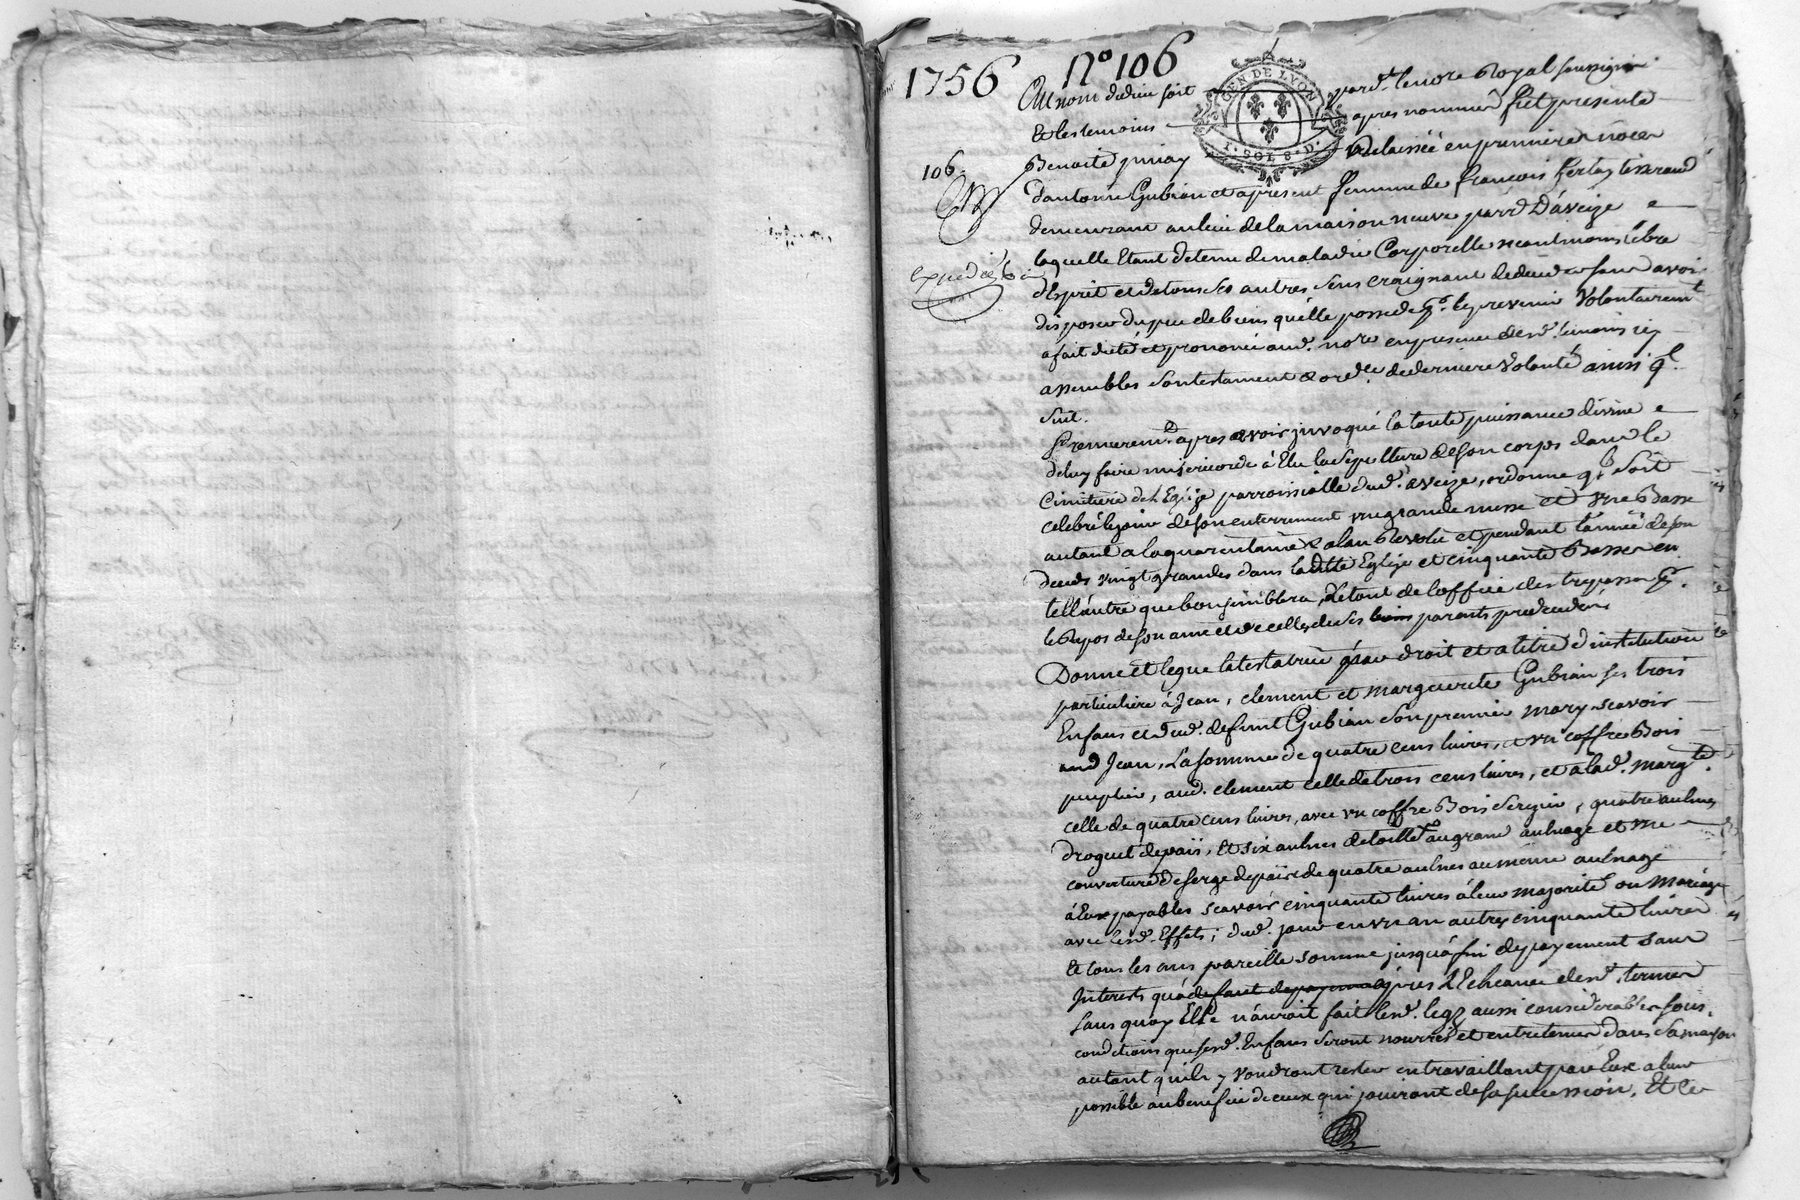 1756 N.o 106
GEN DE LYON
1. SOL 8. D.
Au nom de dieu soit pard.t le nore Royal soussigné
Et les temoins apres nommes fut presente
106
Benoite delaissée en premieres noces
d'antoine Gubian et apresent femme de francois ferlay tisserand
demeurant au lieu de la maison neuve parr. D'aveize
laquelle Etant detenue de maladie Corporelle neantmoins libre
expediée
d'Esprit et de tous ses autres sens craignant de deceder sans avoir
disposer du peu de biens qu'elle possede p.r le prevenir Volontairem.t
a fait dicté et prononcé aud. nore en presence desd. temoins icy
assembles son testament & ord.ce de derniere Volonté ainsi q.l
suit.
Premierem.t apres avoir jnvoqué la toute puissance divine
de luy faire misericorde à Elu la sepulture de son corps dans le
Cimitiere de l'Eglize parroissialle dud. aveize, ordonne q.l soit
celebré le jour de son enterrement une grande messe et une Basse
autant a la quarantaine & a l'an Revolu et pendant l'année de son
deceds vingt grandes dans laditte Eglize et cinquante Basses en
tell'autre que bon semblera, Le tout de l'office des trepasses p.r
le Repos de son ame et de celles de ses parents predecedés
Donne et legue la testatrice par droit et a titre d'institution
particuliere à Jean, clement et marguerite Gubian ses trois
Enfans et dud. defunt Gubian son premier mary scavoir
aud Jean, La somme de quatre cens livres, & un coffre Bois
peuplier, aud. clement celle de trois cens livres, et a lad. marg.te
celle de quatre cens livres, avec un coffre Bois Serizier, quatre aulnes
droguet de païs, et six aulnes de toille au grand aulnage et une
couverture de serge de païs de quatre aulnes au même aulnage
à Eux payables scavoir cinquante livres à leur majorité ou mariage
avec lesd. Effets; dud. jour en un an autres cinquante livres
Et tous les ans pareille somme jusqu'a fin de payement sans
Interets qu'a defaut de payement apres L'Echeance desd. termes
sans quoy Elle n'auroit fait lesd. legz aussi considerables sous
conditions que sesd. Enfans seront nourris et entretenus dans sa maison
autant qu'ils y voudront rester en travaillant par Eux a leur
possible au benefice de ceux qui jouiront de sa succession, Et le